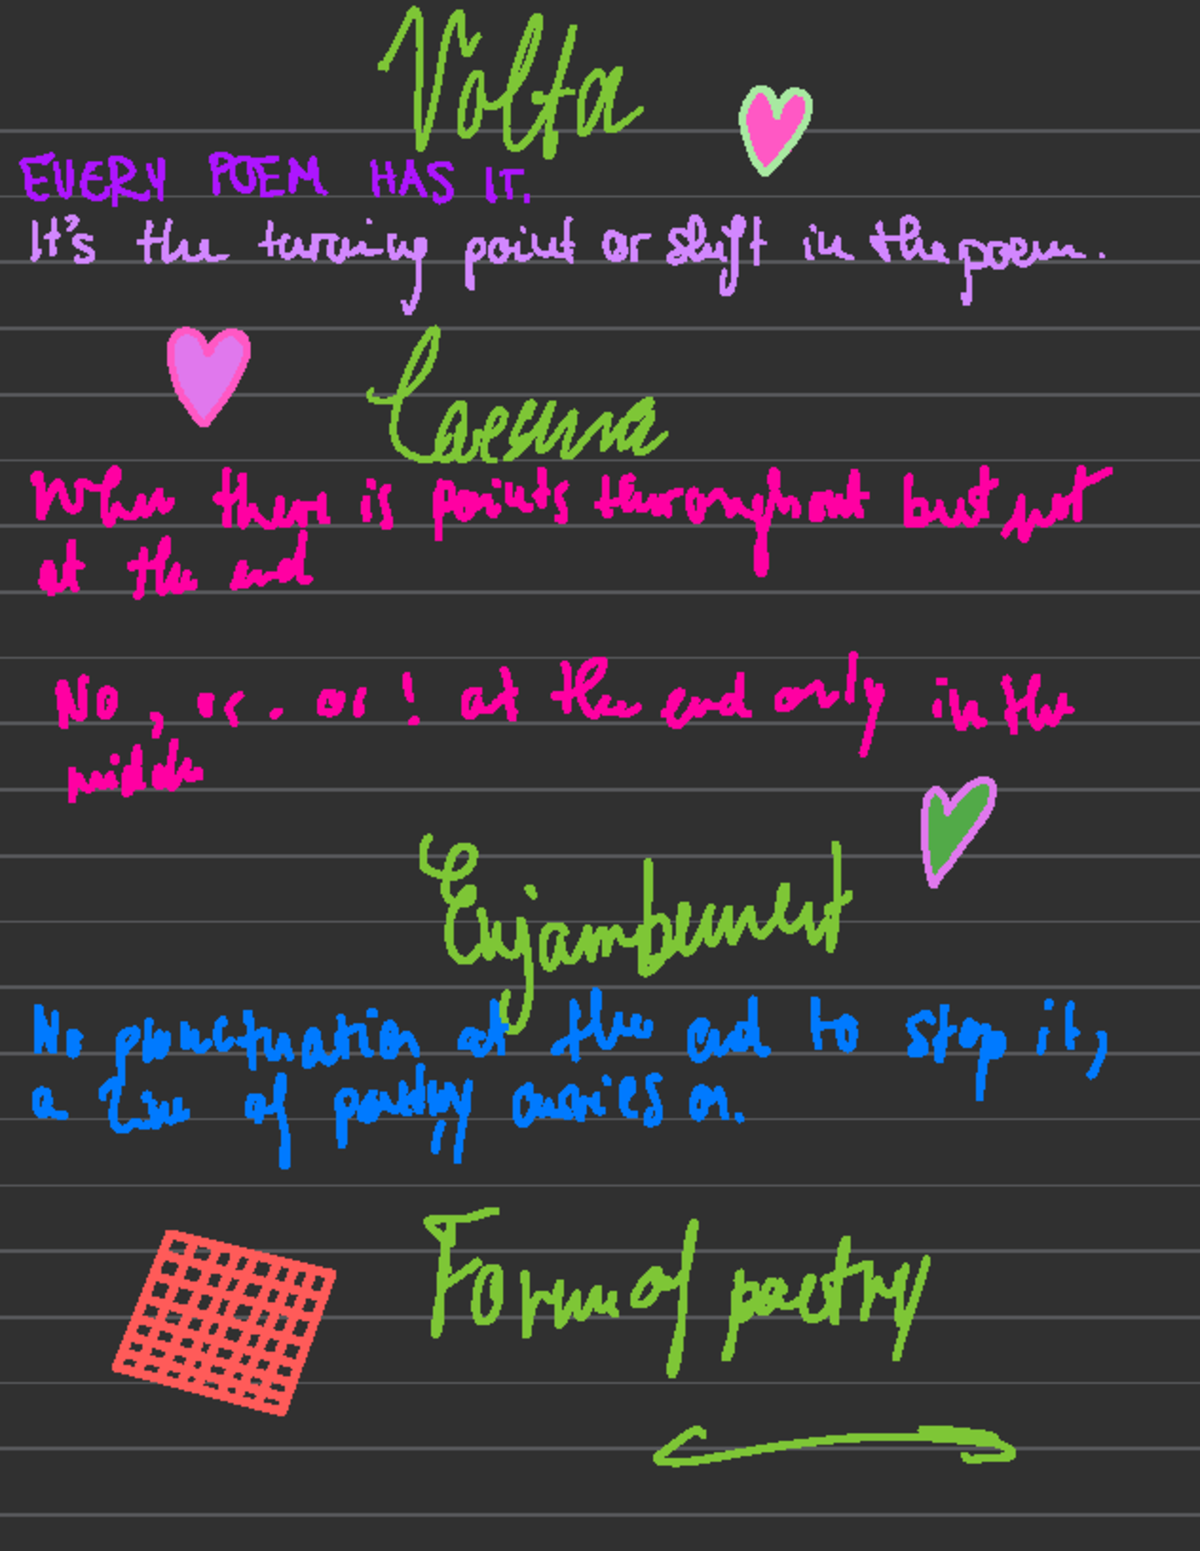 Volta
EVERY POEM HAS IT.
It's the turning point or shift in the poem.
Caesura
When there is points throughout but not
at the end
No , or . or ! at the end only in the
middle
Enjambement
No punctuation at the end to stop it,
a line of poetry carries on.
Form of poetry